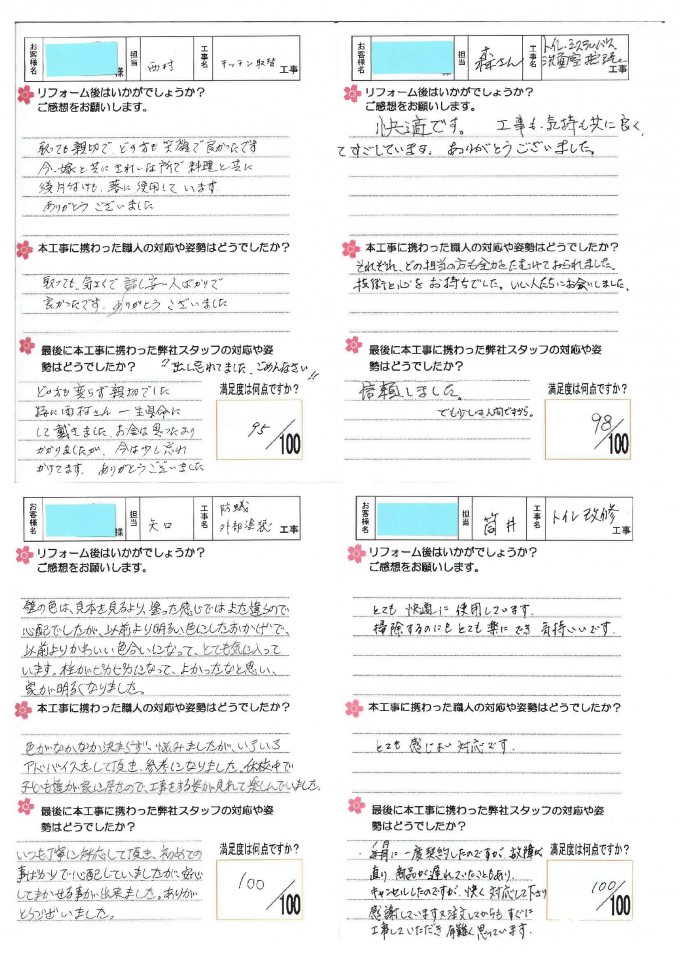 お客様名
様
担当
西村
工事名
キッチン取替
工事
リフォーム後はいかがでしょうか？
ご感想をお願いします。
とても親切で どの方も笑顔で良かったです
今、嫁と共にきれいな所で料理と共に
後片付けも、楽に使用して います
ありがとう ございました
本工事に携わった職人の対応や姿勢はどうでしたか？
とっても、気よくて 話し安い人ばかりで
良かったです。ありがとう ございました
最後に本工事に携わった弊社スタッフの対応や姿
勢はどうでしたか？
出し忘れてました、ごめんなさい!!
どの方も変らず親切でした
特に西村さん 一生県命に
して戴きました、お金は思ったより
かかりましたが、今は少し忘れ
かけてます、ありがとうございました
満足度は何点ですか？
95/100
お客様名
担当
森さん
工事名
トイレ・システムバス
洗面室
工事
リフォーム後はいかがでしょうか？
ご感想をお願いします。
快適です。 工事も、気持も共に良く、
てすごしています。ありがとうございました。
本工事に携わった職人の対応や姿勢はどうでしたか？
それぞれ、どの担当の方も全力をかたむけておられました。
技術と心をお持ちでした。いい人たちにお会いしました。
最後に本工事に携わった弊社スタッフの対応や姿
勢はどうでしたか？
信頼しました。
でも少しは人間ですから。
満足度は何点ですか？
98/100
お客様名
様
担当
矢口
工事名
防蟻
外部塗装
工事
リフォーム後はいかがでしょうか？
ご感想をお願いします。
壁の色は、見本を見るより、塗った感じではまた違うので
心配でしたが、以前より明るい色にしたおかげで、
以前よりかわいい色合いになって、とても気に入って
います。柱がピカピカになって、よかったなと思い、
家が明るくなりました。
本工事に携わった職人の対応や姿勢はどうでしたか？
色がなかなか決まらず、悩みましたが、いろいろ
アドバイスをして頂き、参考になりました。休校中で
子ども達が家に居たので、工事をする姿が見れて楽しんでいました。
最後に本工事に携わった弊社スタッフの対応や姿
勢はどうでしたか？
いつも丁寧に対応して頂き、初めての
事ばかりで心配していましたが、安心
してまかせる事が出来ました。ありが
とうございました。
満足度は何点ですか？
100/100
お客様名
担当
筒井
工事名
トイレ改修
工事
リフォーム後はいかがでしょうか？
ご感想をお願いします。
とても 快適に 使用しています。
掃除するのにもとても楽にでき 気持いいです。
本工事に携わった職人の対応や姿勢はどうでしたか？
とても 感じよい 対応です。
最後に本工事に携わった弊社スタッフの対応や姿
勢はどうでしたか？
に一度契約したのですが、故障が
直り、部品が遅れていたこともあり、
キャンセルしたのですが、快く対応して下さり
感謝しています。又注文してからもすぐに
工事していただき 有難く思っています。
満足度は何点ですか？
100/100